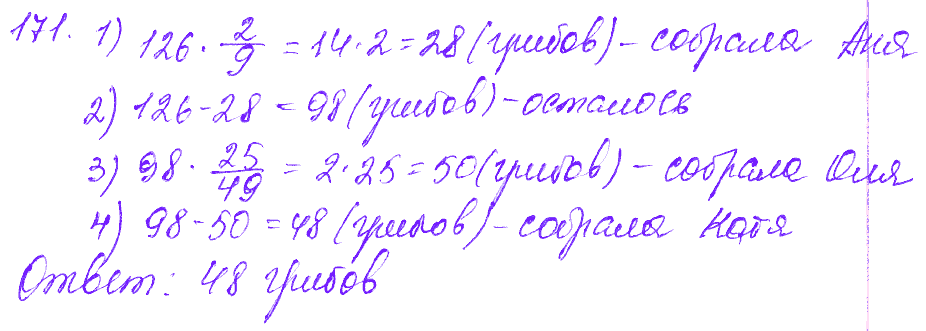 171. 1) 126 · 2/9 = 14 · 2 = 28 (грибов) – собрала Аня
2) 126 - 28 = 98 (грибов) – осталось
3) 98 · 25/49 = 2 · 25 = 50 (грибов) – собрала Оля
4) 98 - 50 = 48 (грибов) – собрала Катя
Ответ: 48 грибов